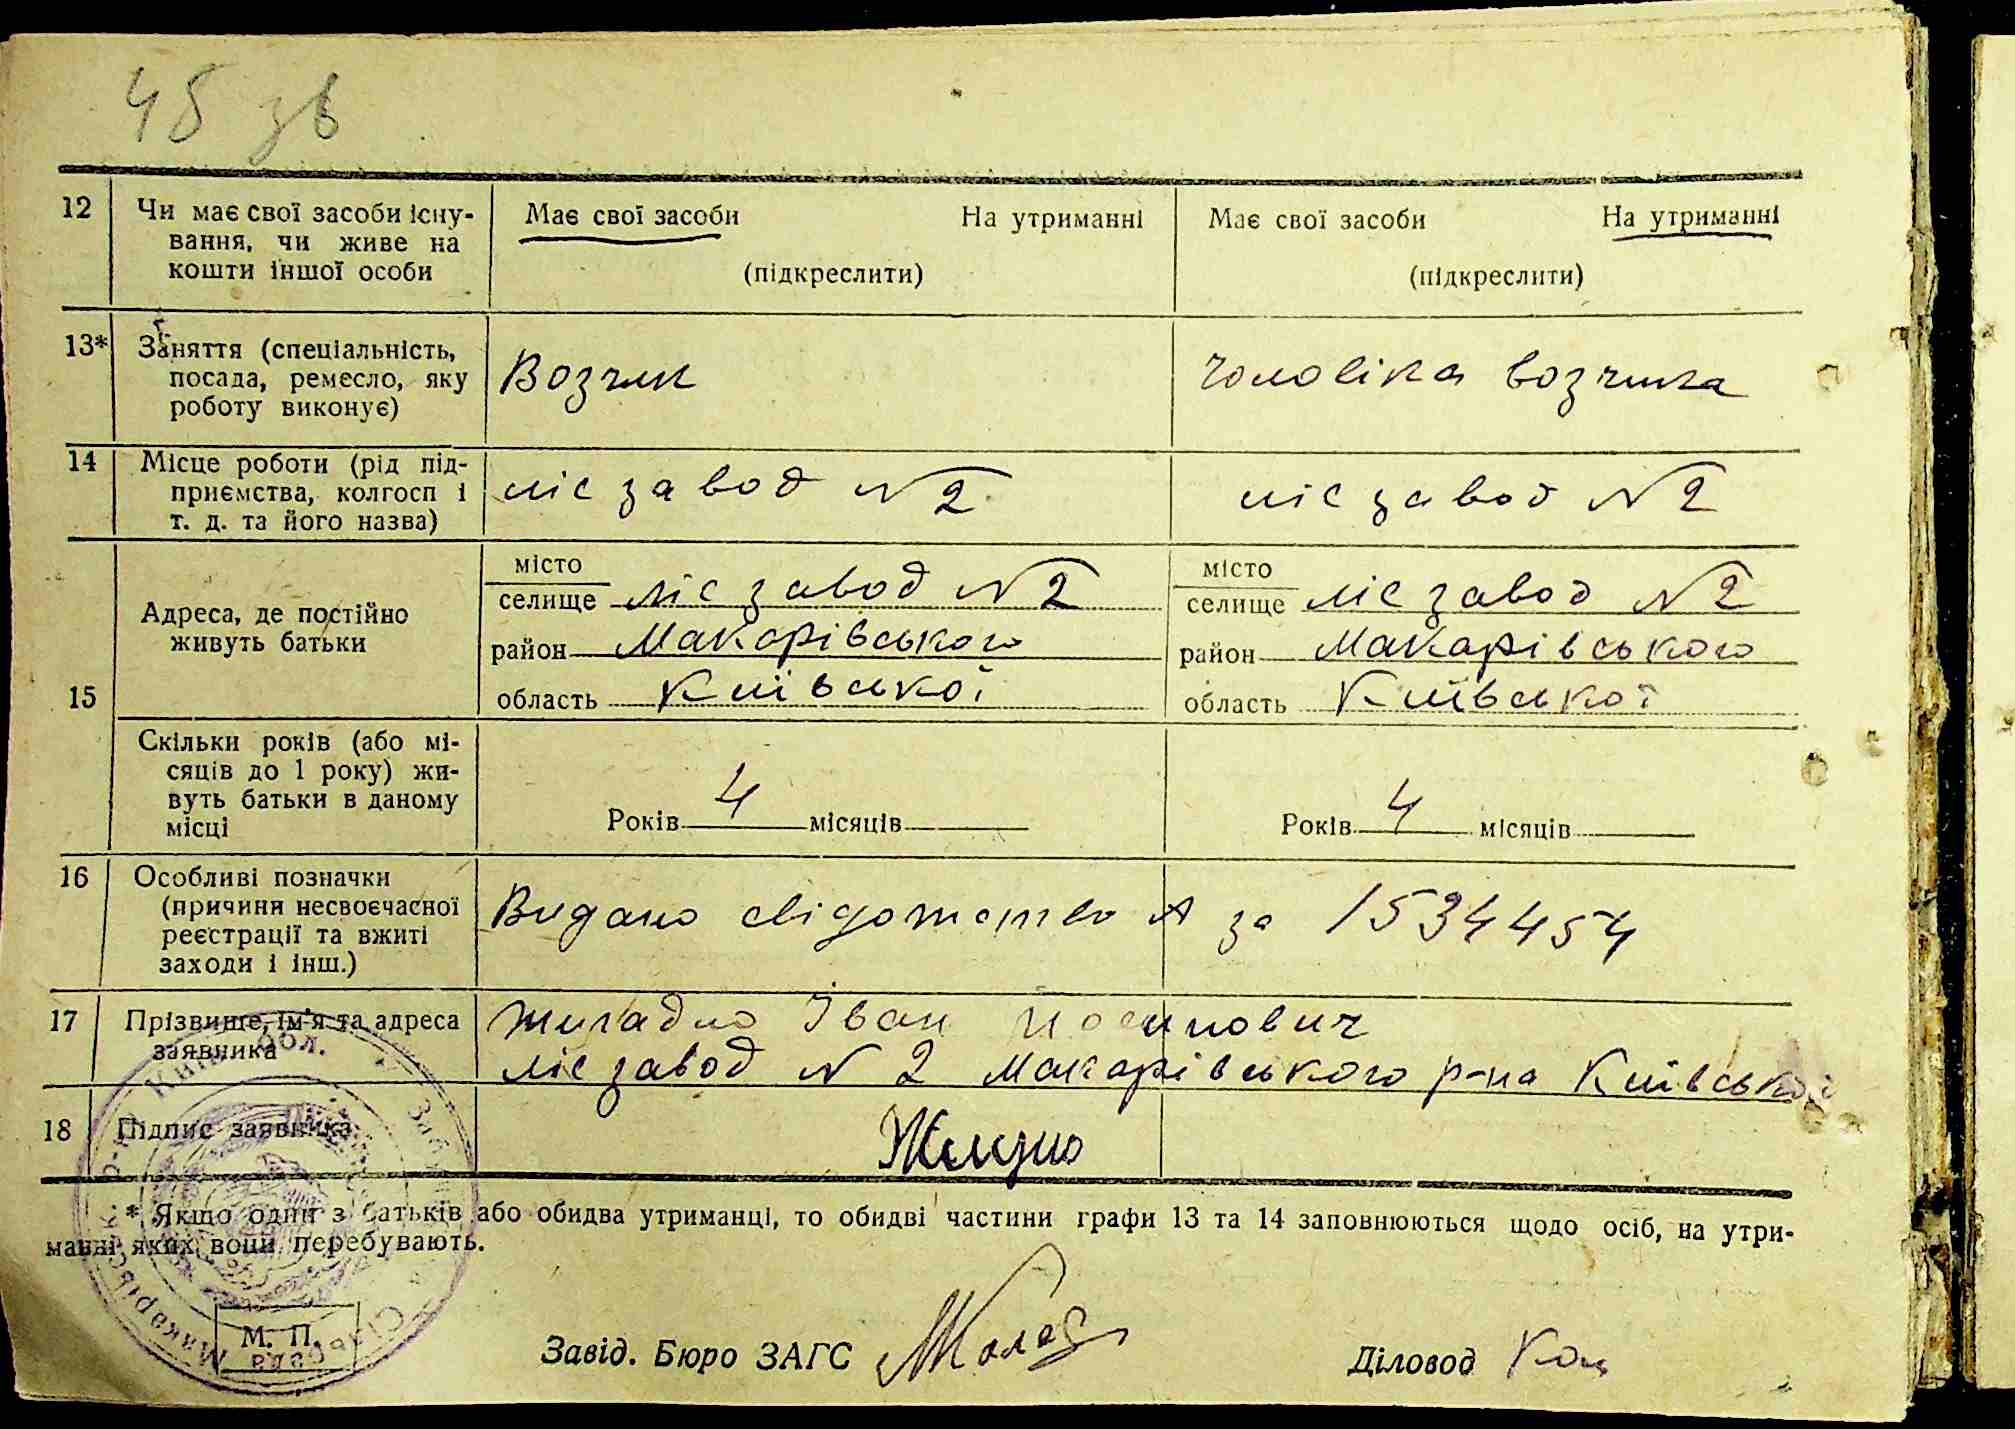 45 зв
12 Чи має свої засоби існу-
вання, чи живе на
кошти іншої особи
Має свої засоби На утриманні
(підкреслити)
Має свої засоби На утриманні
(підкреслити)
13* Заняття (спеціальність,
посада, ремесло, яку
роботу виконує)
Возчик
чоловіка возчика
14 Місце роботи (рід під-
приємства, колгосп і
т. д. та його назва)
ліс завод N 2
ліс завод N 2
15 Адреса, де постійно
живуть батьки
місто
селище ліс завод N 2
район Макарівського
область Київської
місто
селище ліс завод N 2
район Макарівського
область Київської
Скільки років (або мі-
сяців до 1 року) жи-
вуть батьки в даному
місці
Років 4 місяців
Років 4 місяців
16 Особливі позначки
(причини несвоєчасної
реєстрації та вжиті
заходи і інш.)
Видано свідотство А за 1534454
17 Прізвище, ім'я та адреса
заявника
Іван Йосипович
ліс завод N 2 Макарівського р-на Київської
18 Підпис заявника
* Якщо один з батьків або обидва утриманці, то обидві частини графи 13 та 14 заповнюються щодо осіб, на утри-
манні яких вони перебувають.
М. П.
Завід. Бюро ЗАГС
Діловод